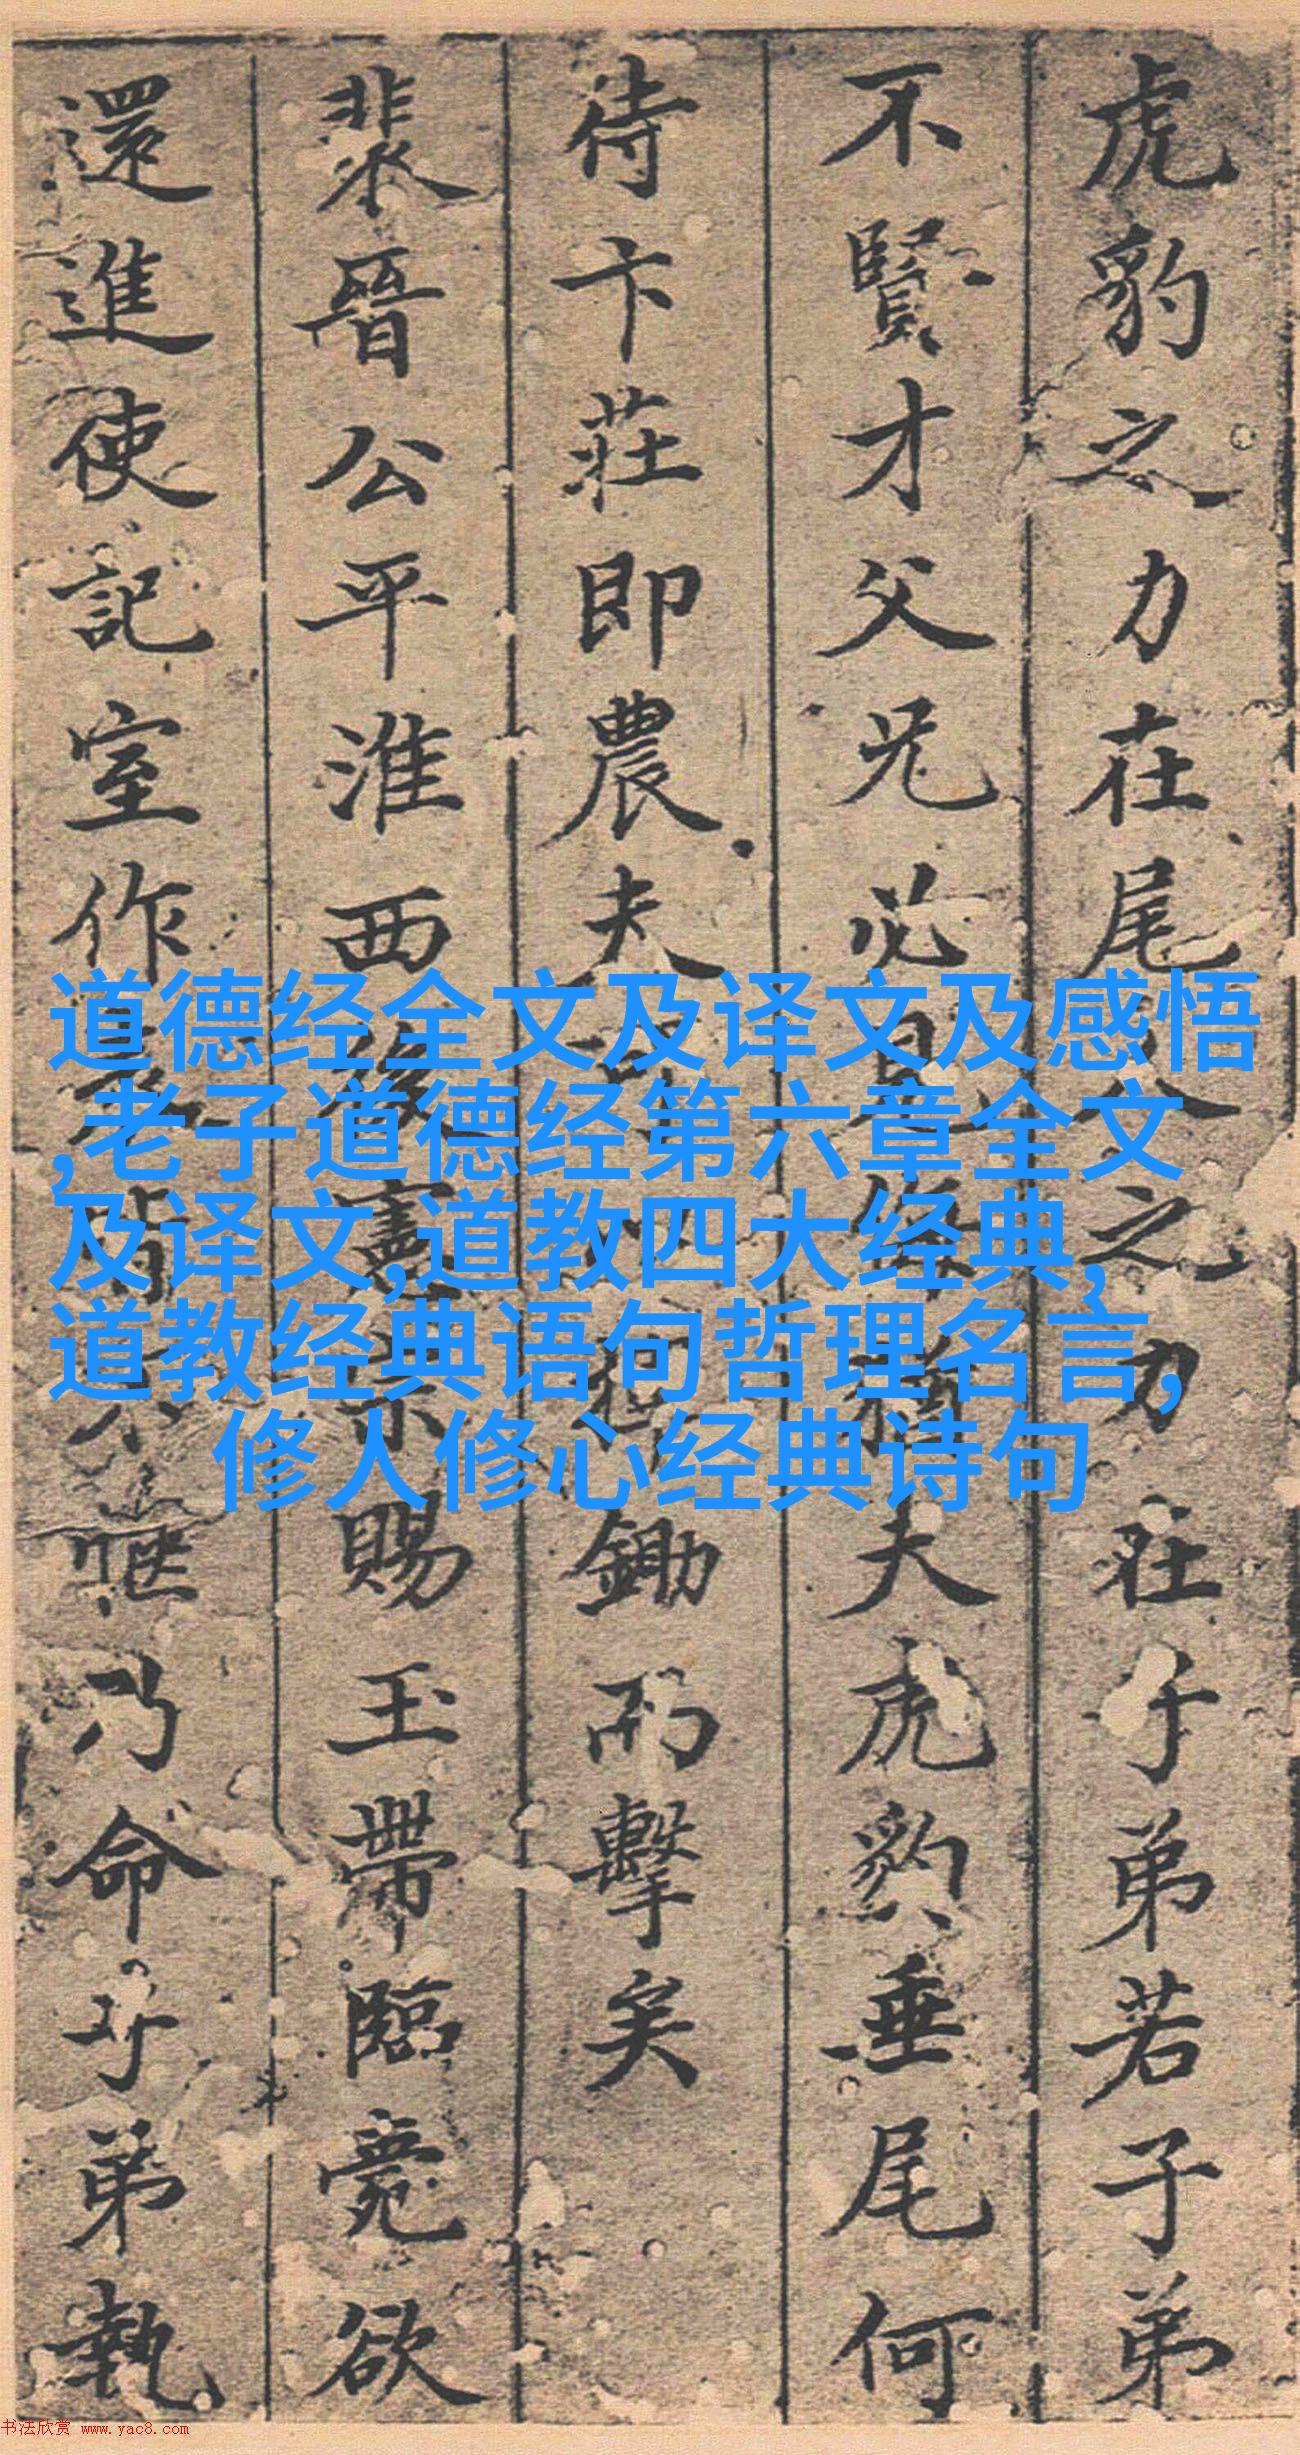 虎豹之力在尾人之力在子弟若子弟
不賢才父兄必自夫虎豹垂尾何
待卞莊即農夫鋤而擊矣
裴晉公平淮西後憲宗賜玉帶臨薨欲
還進使記室作表皆不愜乃命子弟執
道德经全文及译文及感悟
,老子道德经第六章全文
及译文,道教四大经典,
道教经典语句哲理名言,
修人修心经典诗句
书法欣赏 www.yac8.com